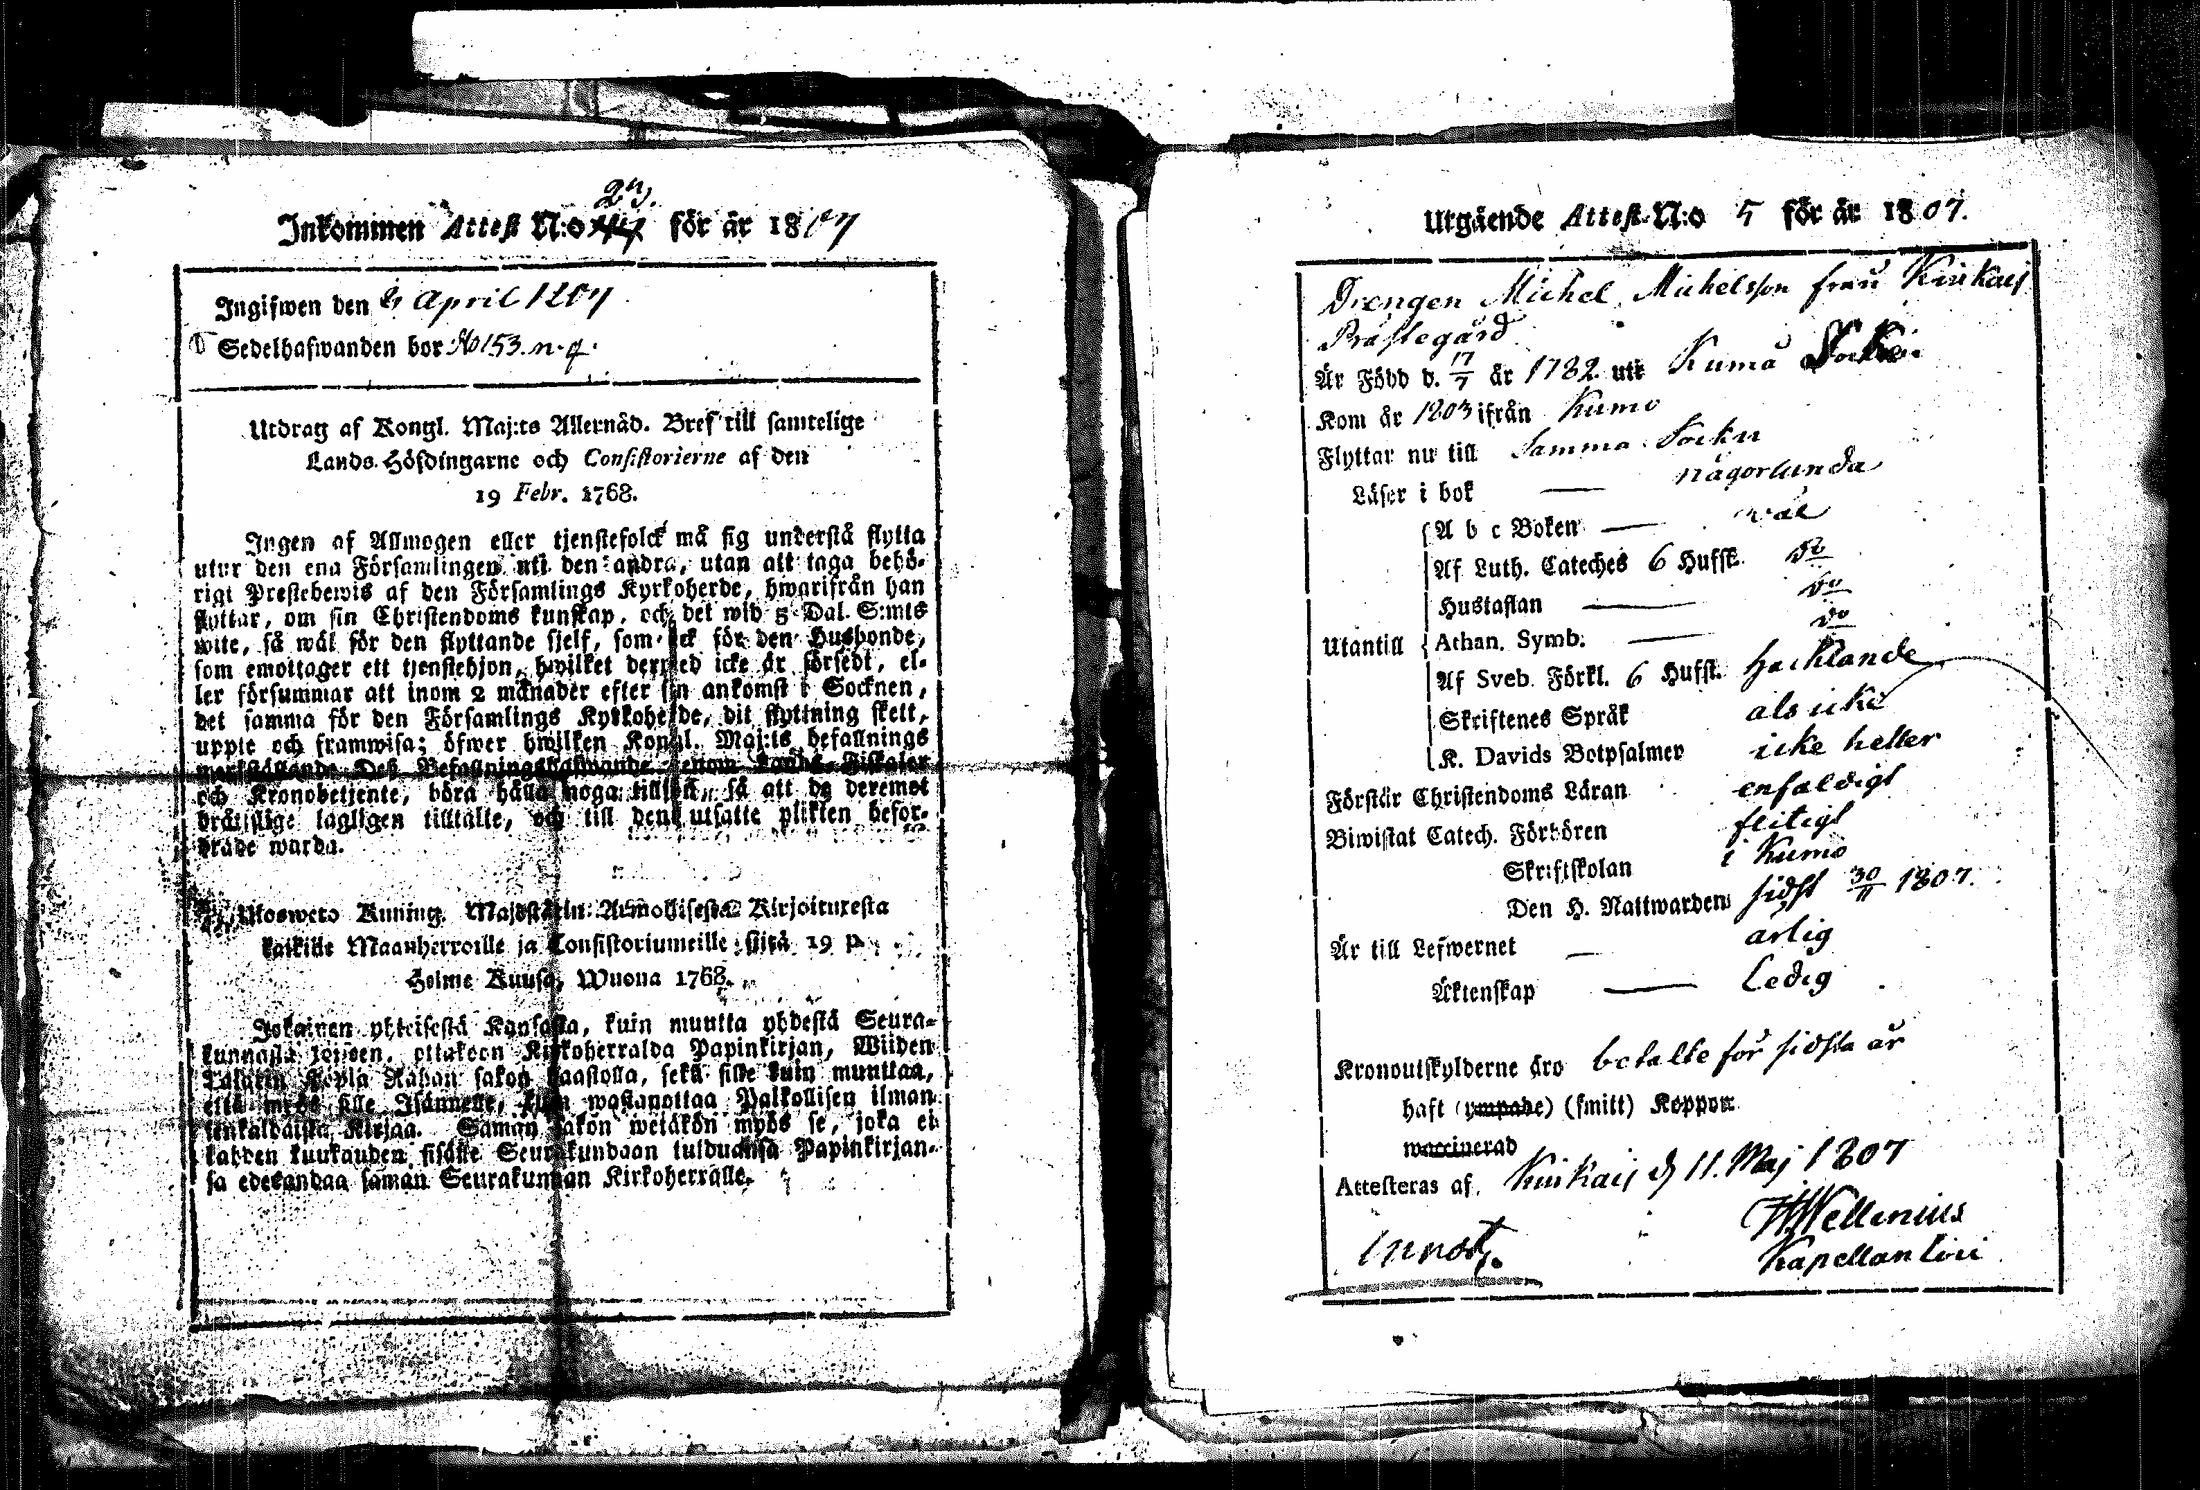 Inkommen Attest N:o 23. för år 1807
Ingifwen den April 1807
Sedelhafwanden bor No 153. n. q.
Utdrag af Kongl. Maj:ts Allernåd. Bref till samtelige
Lands-Höfdingarne och Consistorierne af den
19 Febr. 1768.
Ingen af Allmogen eller tjenstefolck må sig understå flytta
utur den ena Församlingen uti den andra, utan att taga behö-
rigt Prestebewis af den Församlings Kyrkoherde, hwarifrån han
flyttar, om sin Christendoms kunskap, och det wid 5 Dal. S:mts
wite, så wäl för den flyttande sjelf, som ock för den Husbonde,
som emottager ett tjenstehjon, hwilket dermed icke är försedt, el-
ler försummar att inom 2 månader efter sin ankomst i Socknen,
det samma för den Församlings Kyrkoherde, dit flyttning skett,
uppte och framwisa; öfwer hwilken Kongl. Maj:ts befallnings
werkställande Deß Befallningshafwande genom Lands-Fiskaler
och Kronobetjente, böra hålla noga tillsyn, så att de deremot
brätslige lagligen tilltalte, och till den utsatte plikten befor-
drade warda.
Ulosweto Kuning. Majestätin Armollisesta Kirjoituxesta
kaikille Maanherroille ja Consistoriumeille siitä 19 p.
Helme Kuusa, Wuona 1768.
Jokainen yhteisestä Kansasta, kuin muutta yhdestä Seura-
kunnasta toiseen, ottakoon Kirkoherralda Papinkirjan, Wiiden
Talarin Hopia Rahan sakon haastolla, sekä sille kuin muuttaa,
että myös sille Isännelle, kuin wastanottaa Palkollisen ilman
senkaldaista Kirjaa. Saman sakon wetäkön myös se, joka ei
kahden kuukauden sisälle Seurakundaan tulduansa Papinkirjan-
sa edeskandaa saman Seurakunnan Kirkoherralle.
Utgående Attest N:o 5 för år 1807.
Drengen Michel Michelsson från Kiukais
Prästegård
Är Född d. 17/7 år 1782 utr Kumå Socken
Kom år 1803 ifrån Kumo
Flyttar nu till Samma Sockn
Läser i bok någorlunda
A b c Boken wäl
Af Luth. Cateches 6 Hufst. do
Hustaflan do
Utantill Athan. Symb. do
Af Sveb. Förkl. 6 Hufst. hacklande
Skriftenes Språk als icke
K. Davids Botpsalmer icke heller
Förstår Christendoms Läran enfaldigt
Biwistat Catech. Förhören flitigt
Skriftskolan i Kumo
Den H. Nattwarden sidst 30/11 1807.
Är till Lefwernet ärlig
Äktenskap Ledig
Kronoutskylderne äro betalte för sidsta år
haft (ympade) (smitt) Koppor
waccinerad
Attesteras af. Kiukais d 11. Maj 1807
Wellenius
Kapellan loci